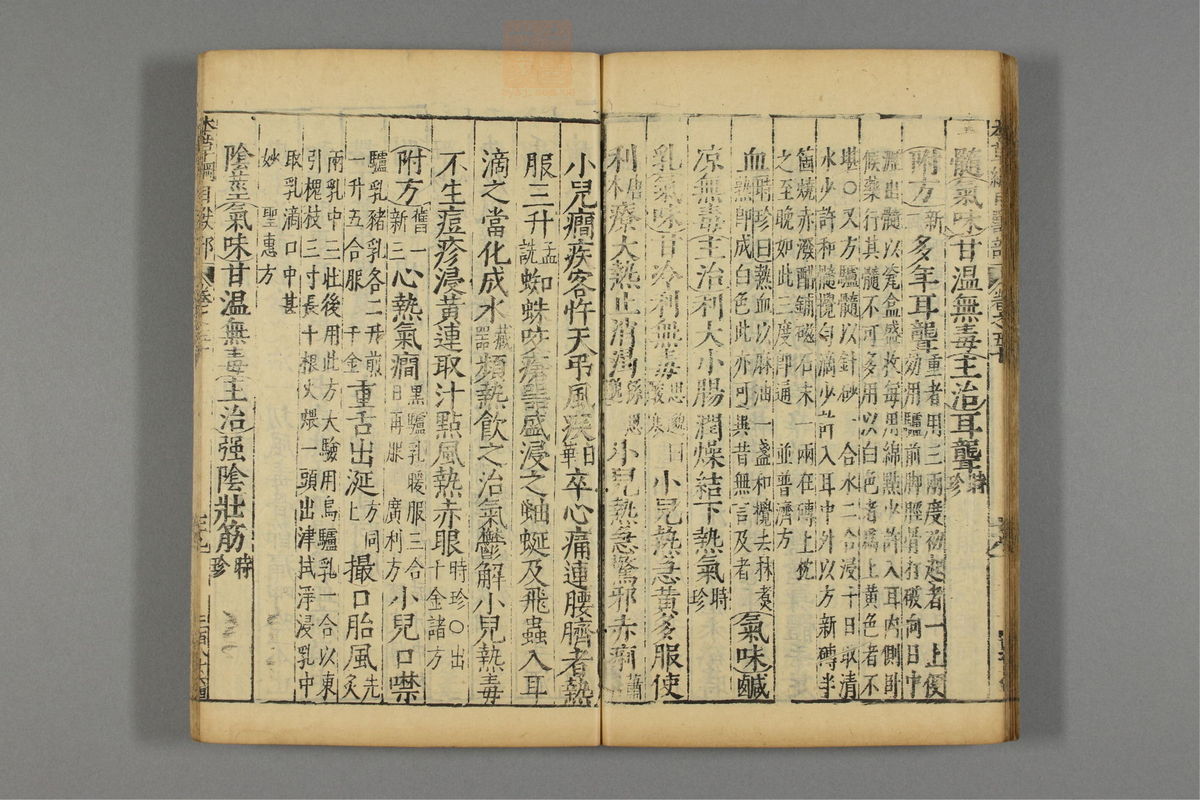 髓氣味甘溫無毒主治耳聾時珍
附方新一多年耳聾重者用三兩度初起者一上便
効用驢前脚脛骨打破向日中
瀝出髓以瓷盒盛收每用綿點少許入耳內側臥
候藥行其髓不可多用以白色者爲上黃色者不
堪○又方驢髓以針砂一合水二合浸十日取清
水少許和髓攪勻滴少許入耳中外以方新磚半
箇燒赤潑醋鋪磁石末一兩在磚上枕
之至晚如此三度即通 並普濟方
血時珍曰熱血以麻油一盞和攪去沫煮
熟即成白色此亦可異昔無言及者氣味鹹
凉無毒主治利大小腸潤燥結下熱氣時珍
乳氣味甘冷利無毒思邈曰酸寒小兒熱急黃多服使
利唐本療大熱止消渴孫思邈小兒熱急驚邪赤痢蕭
小兒癇疾客忤天弔風疾日華卒心痛連腰臍者熱
服三升孟詵蜘蛛咬瘡器盛浸之蚰蜒及飛蟲入耳
滴之當化成水藏器頻熱飲之治氣鬱解小兒熱毒
不生痘疹浸黃連取汁點風熱赤眼時珍○出千金諸方
附方舊一新三心熱氣癇黑驢乳暖服三合日再服 廣利方小兒口噤
驢乳豬乳各二升煎一升五合服 千金重舌出涎方同上撮口胎風先灸
兩乳中三壯後用此方大驗用烏驢乳一合以東
引槐枝三寸長十根火煨一頭出津拭淨浸乳中
取乳滴口中甚
妙 聖惠方
陰莖氣味甘溫無毒主治强陰壯筋時珍